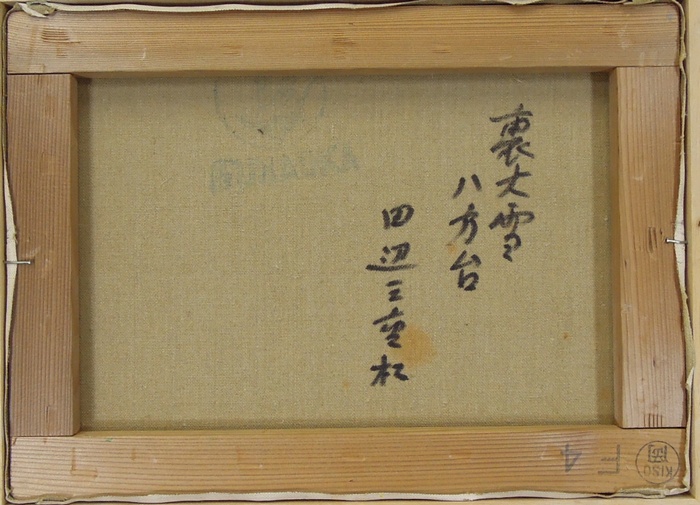 裏大雪
八方台
田辺三重松
F4
KISO